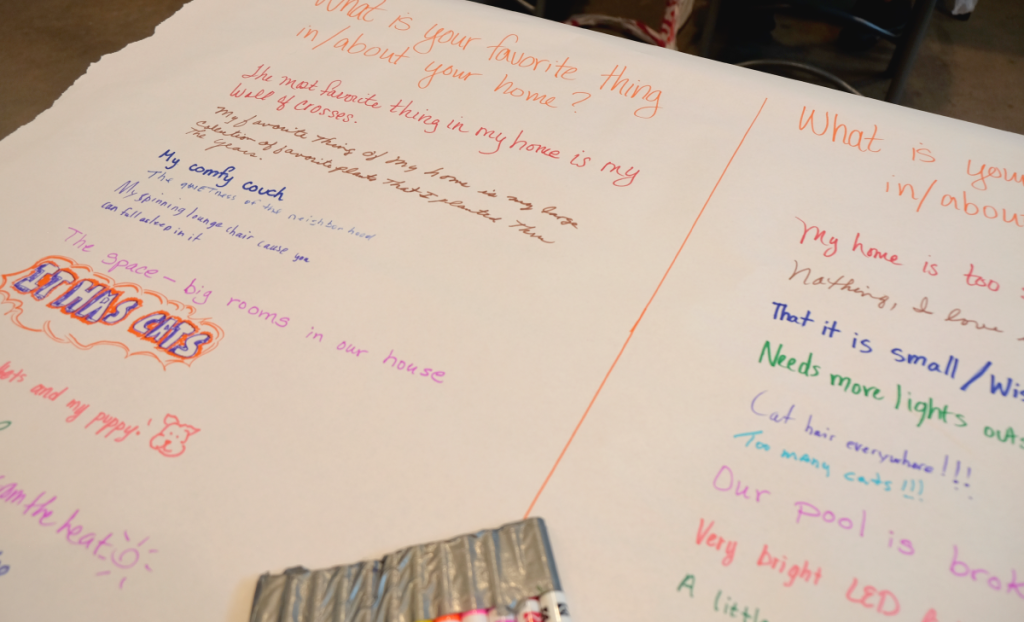 What is your favorite thing
in/about your home?
The most favorite thing in my home is my
Wall of Crosses.
My favorite thing of my home is my large
collection of favorite plants that I planted
The years.
My comfy couch
The quietness of the neighborhood
My spinning lounge chair cause you
can fall asleep in it
The space - big rooms in our house
IT HAS CATS
and my puppy!
am the heat
What is
in/about
My home is too
Nothing, I love
That it is small/
Needs more lights
Cat hair everywhere!!!
Too many cats!!!
Our pool is
Very bright LED
A little